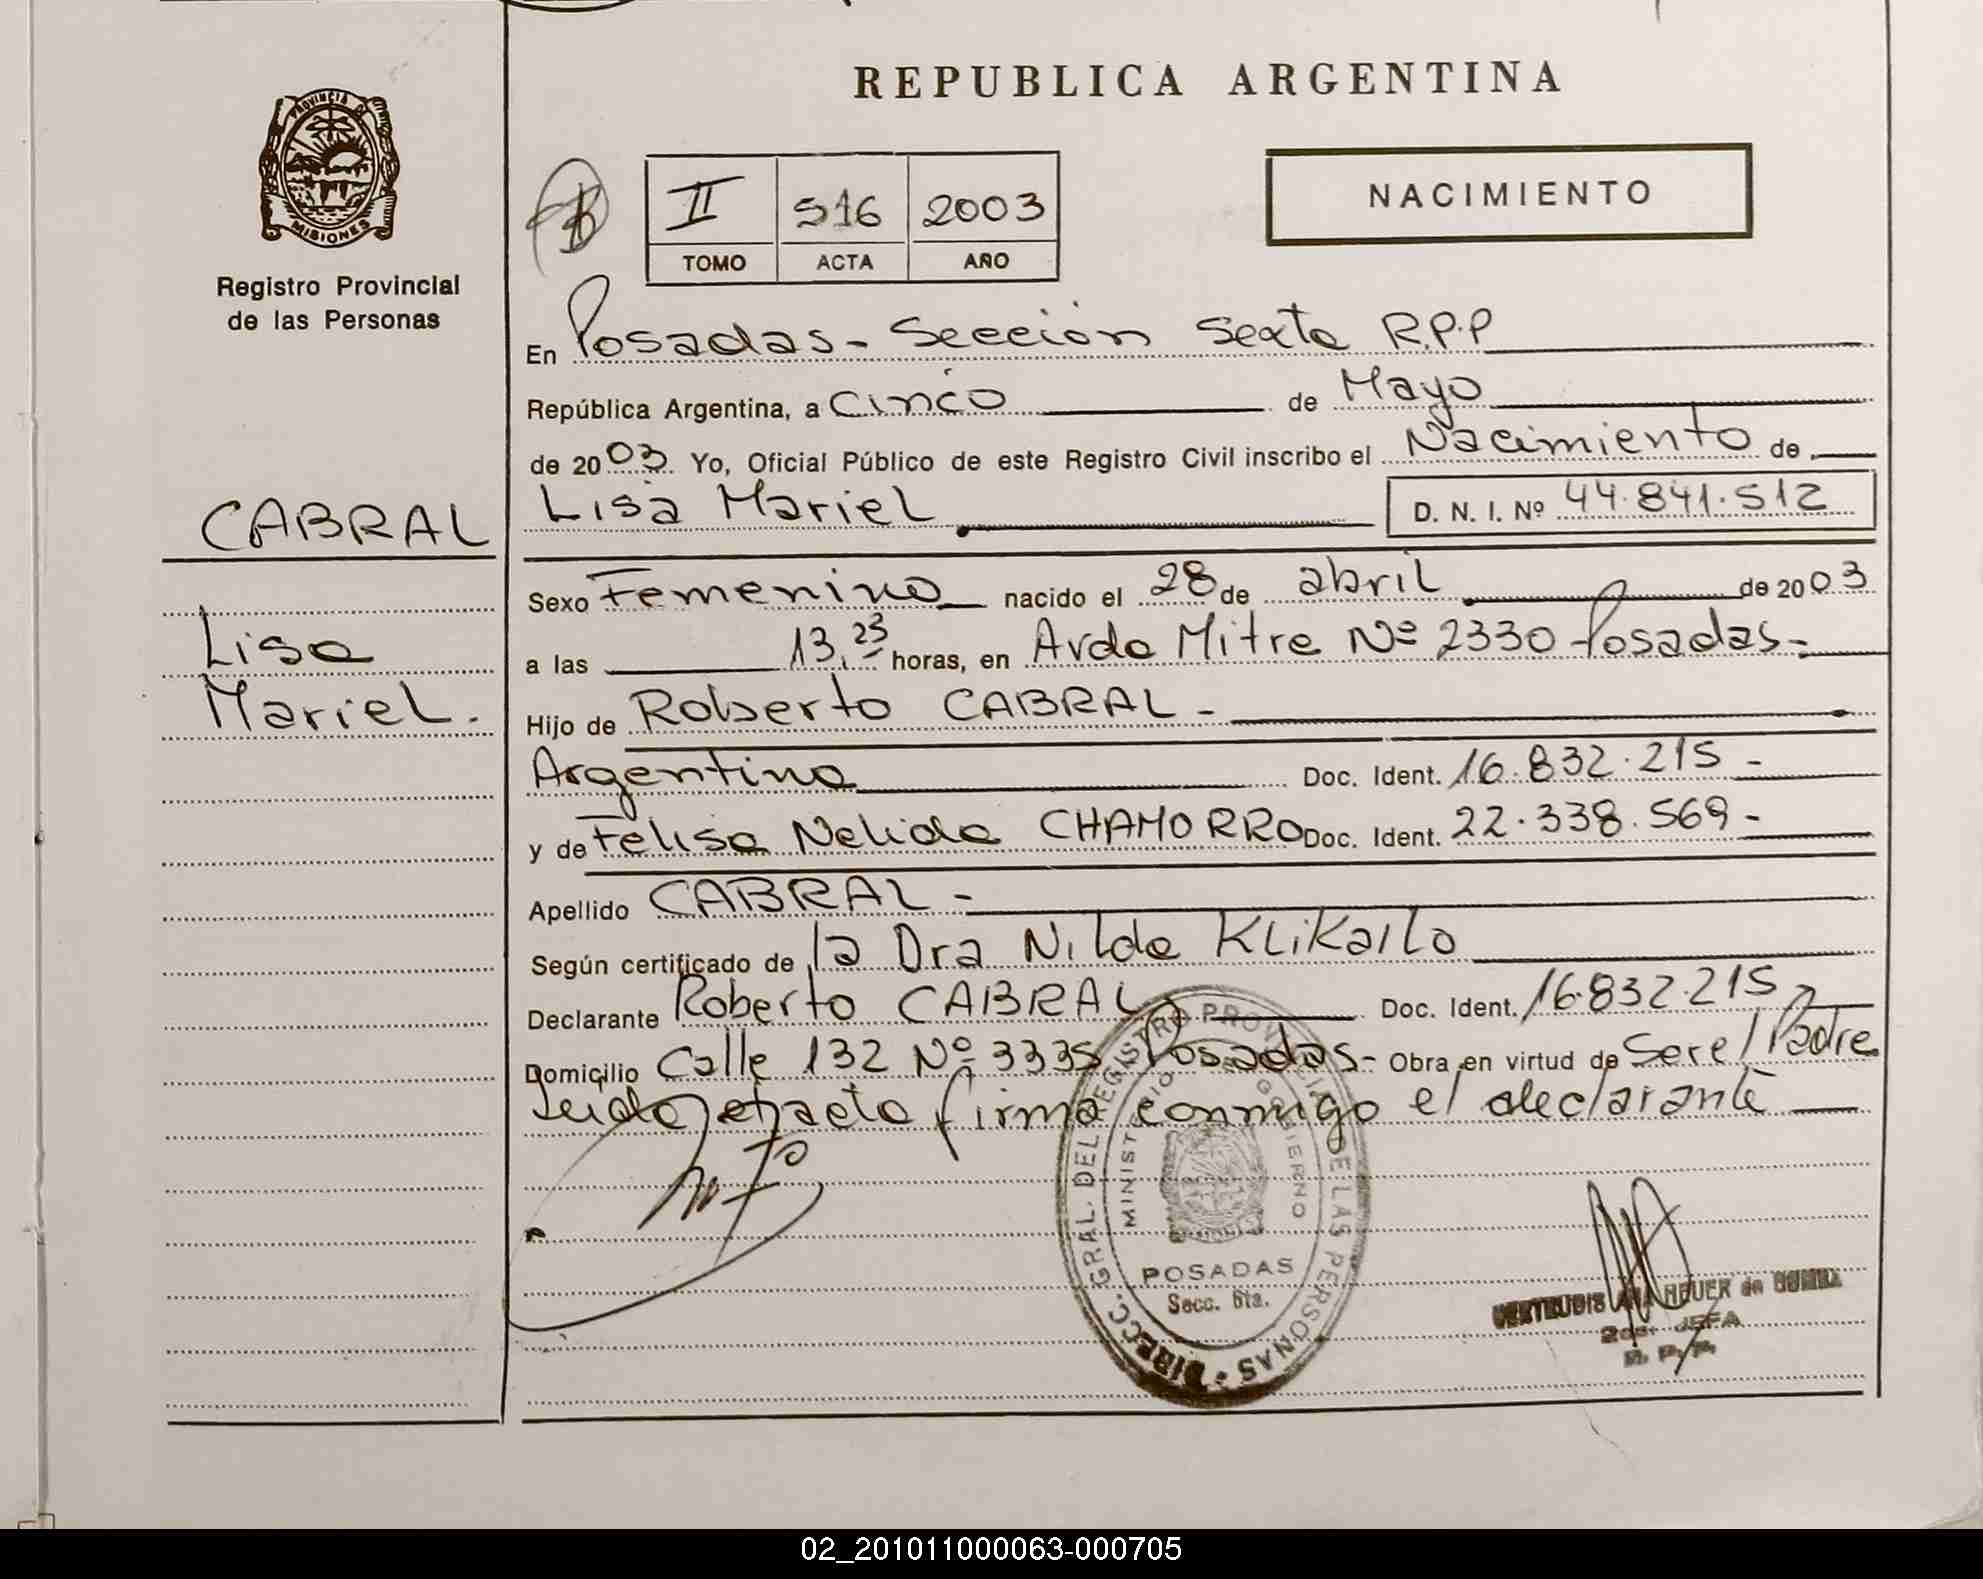 REPUBLICA ARGENTINA
PROVINCIA DE
MISIONES
Registro Provincial
de las Personas
II 516 2003
TOMO ACTA AÑO
NACIMIENTO
En Posadas - Sección Sexta R.P.P
República Argentina, a cinco de Mayo
de 2003 Yo, Oficial Público de este Registro Civil inscribo el Nacimiento de
CABRAL
Lisa Mariel D. N. I. Nº 44.841.512
Sexo Femenino nacido el 28 de abril de 2003
Lisa
Mariel.
a las 13,23 horas, en Avda Mitre Nº 2330 - Posadas -
Hijo de Roberto CABRAL -
Argentino Doc. Ident. 16.832.215 -
y de Felisa Nelida CHAMORRO Doc. Ident. 22.338.569 -
Apellido CABRAL -
Según certificado de la Dra Nilda Klikailo
Declarante Roberto CABRAL Doc. Ident. 16.832.215
Domicilio Calle 132 Nº 3335 Posadas - Obra en virtud de Ser el Padre
Leida el acta firma conmigo el declarante
DIRECC. GRAL. DEL REGISTRO PROVINCIAL DE LAS PERSONAS
MINISTERIO GOBIERNO
POSADAS
Secc. 6ta.
REUER de
JEFA
R. P. P.
02_201011000063-000705